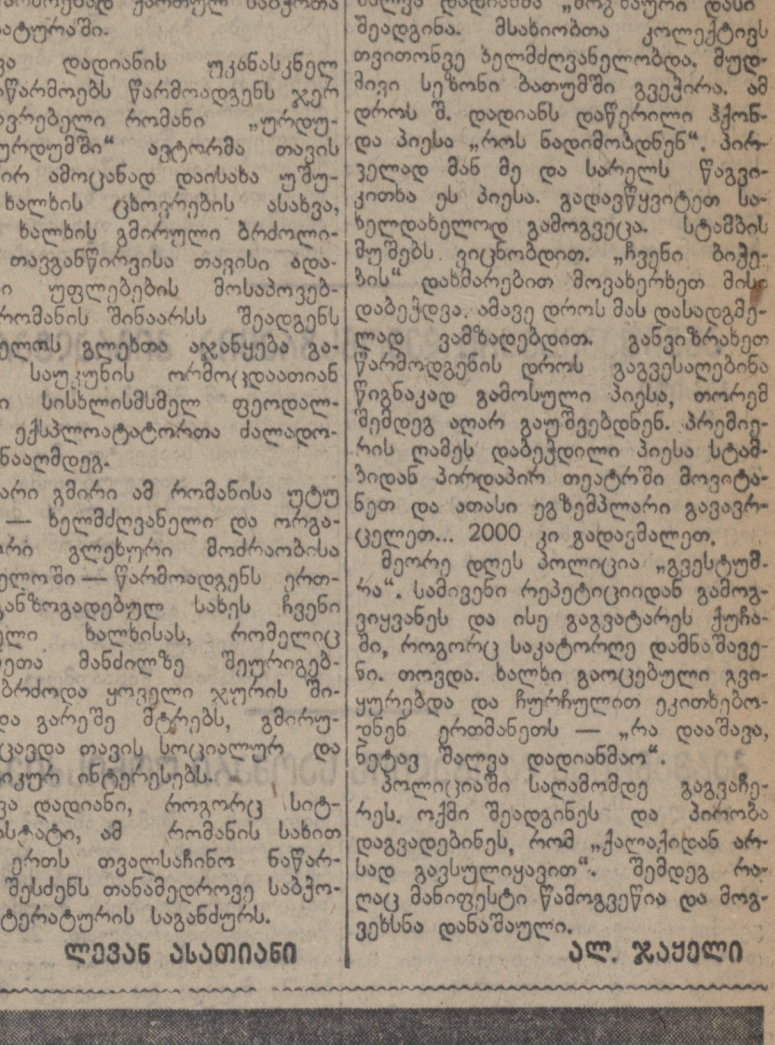 ატურაში.
ვა დადიანის უკანასკნელ
წარმოებს წარმოადგენს ჯერ
ვრებელი რომანი „ურდუ-
ურდუმში“ ავტორმა თავის
ირ ამოცანად დაისახა უშუ-
ხალხის ცხოვრების ასახვა,
ხალხის გმირული ბრძოლი-
თავგანწირვისა თავისი ადა-
ი უფლებების მოსაპოვებ-
რომანის შინაარსს შეადგენს
ელოს გლეხთა აჯანყება გა-
საუკუნის ორმოცდაათიან
ი სისხლისმსმელ ფეოდალ-
ექსპლოატატორთა ძალადო-
ნააღმდეგ.
არი გმირი ამ რომანისა უტუ
— ხელმძღვანელი და ორგა-
რი გლეხური მოძრაობისა
ელოში — წარმოადგენს ერთ-
განზოგადებულ სახეს ჩვენი
ელი ხალხისას, რომელიც
ეთა მანძილზე შეურიგებ-
ბრძოდა ყოველი ჯურის ში-
და გარეშე მტრებს, გმირუ-
ცავდა თავის სოციალურ და
იკურ ინტერესებს.
ვა დადიანი, როგორც სიტ-
ასტატი, ამ რომანის სახით
ერთს თვალსაჩინო ნაწარ-
შესძენს თანამედროვე საბჭო-
ტერატურის საგანძურს.
ლევან ასათიანი
შეადგინა. მსახიობთა კოლექტივს
თვითონვე ხელმძღვანელობდა. მუდ-
მივი სეზონი ბათუმში გვეჭირა. ამ
დროს შ. დადიანს დაწერილი ჰქონ-
და პიესა „როს ნადიმობდნენ“. პირ-
ველად მან მე და სარელს წაგვი-
კითხა ეს პიესა. გადავწყვიტეთ სა-
ხელდახელოდ გამოგვეცა. სტამბის
მუშებს ვიცნობდით. „ჩვენი ბიჭე-
ბის“ დახმარებით მოვახერხეთ მისი
დაბეჭდვა. ამავე დროს მას დასადგმე-
ლად ვამზადებდით. განვიზრახეთ
წარმოდგენის დროს გაგვესაღებინა
წიგნაკად გამოსული პიესა, თორემ
შემდეგ აღარ გაუშვებდნენ. პრემიე-
რის ღამეს დაბეჭდილი პიესა სტამ-
ბიდან პირდაპირ თეატრში მოვიტა-
ნეთ და ათასი ეგზემპლარი გავავრ-
ცელეთ... 2000 კი გადავმალეთ.
მეორე დღეს პოლიცია „გვესტუმ-
რა“. სამივენი რეპეტიციიდან გამოგ-
ვიყვანეს და ისე გაგვატარეს ქუჩა-
ში, როგორც საკატორღე დამნაშავე-
ნი. თოვდა. ხალხი გაოცებული გვი-
ყურებდა და ჩურჩულით ეკითხებო-
დნენ ერთმანეთს — „რა დააშავა,
ნეტავ შალვა დადიანმაო“.
პოლიციაში საღამომდე გაგვაჩე-
რეს. ოქმი შეადგინეს და პირობა
დაგვადებინეს, რომ „ქალაქიდან არ-
სად გავსულიყავით“. შემდეგ რა-
ღაც მანიფესტი წამოგვეწია და მოგ-
ვეხსნა დანაშაული.
ალ. ჯაყელი